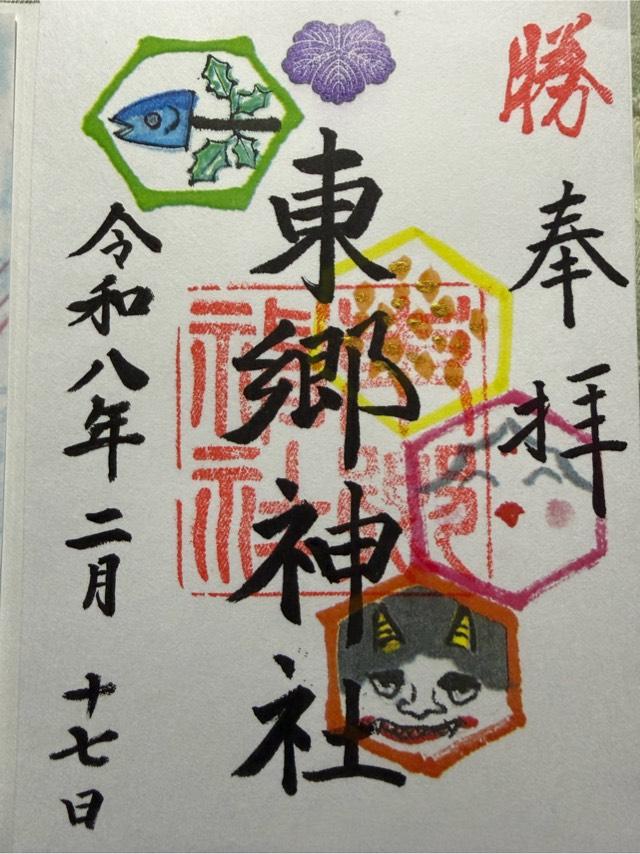 勝
奉拝
東郷神社
東郷
神社
令和八年 二月 十七日